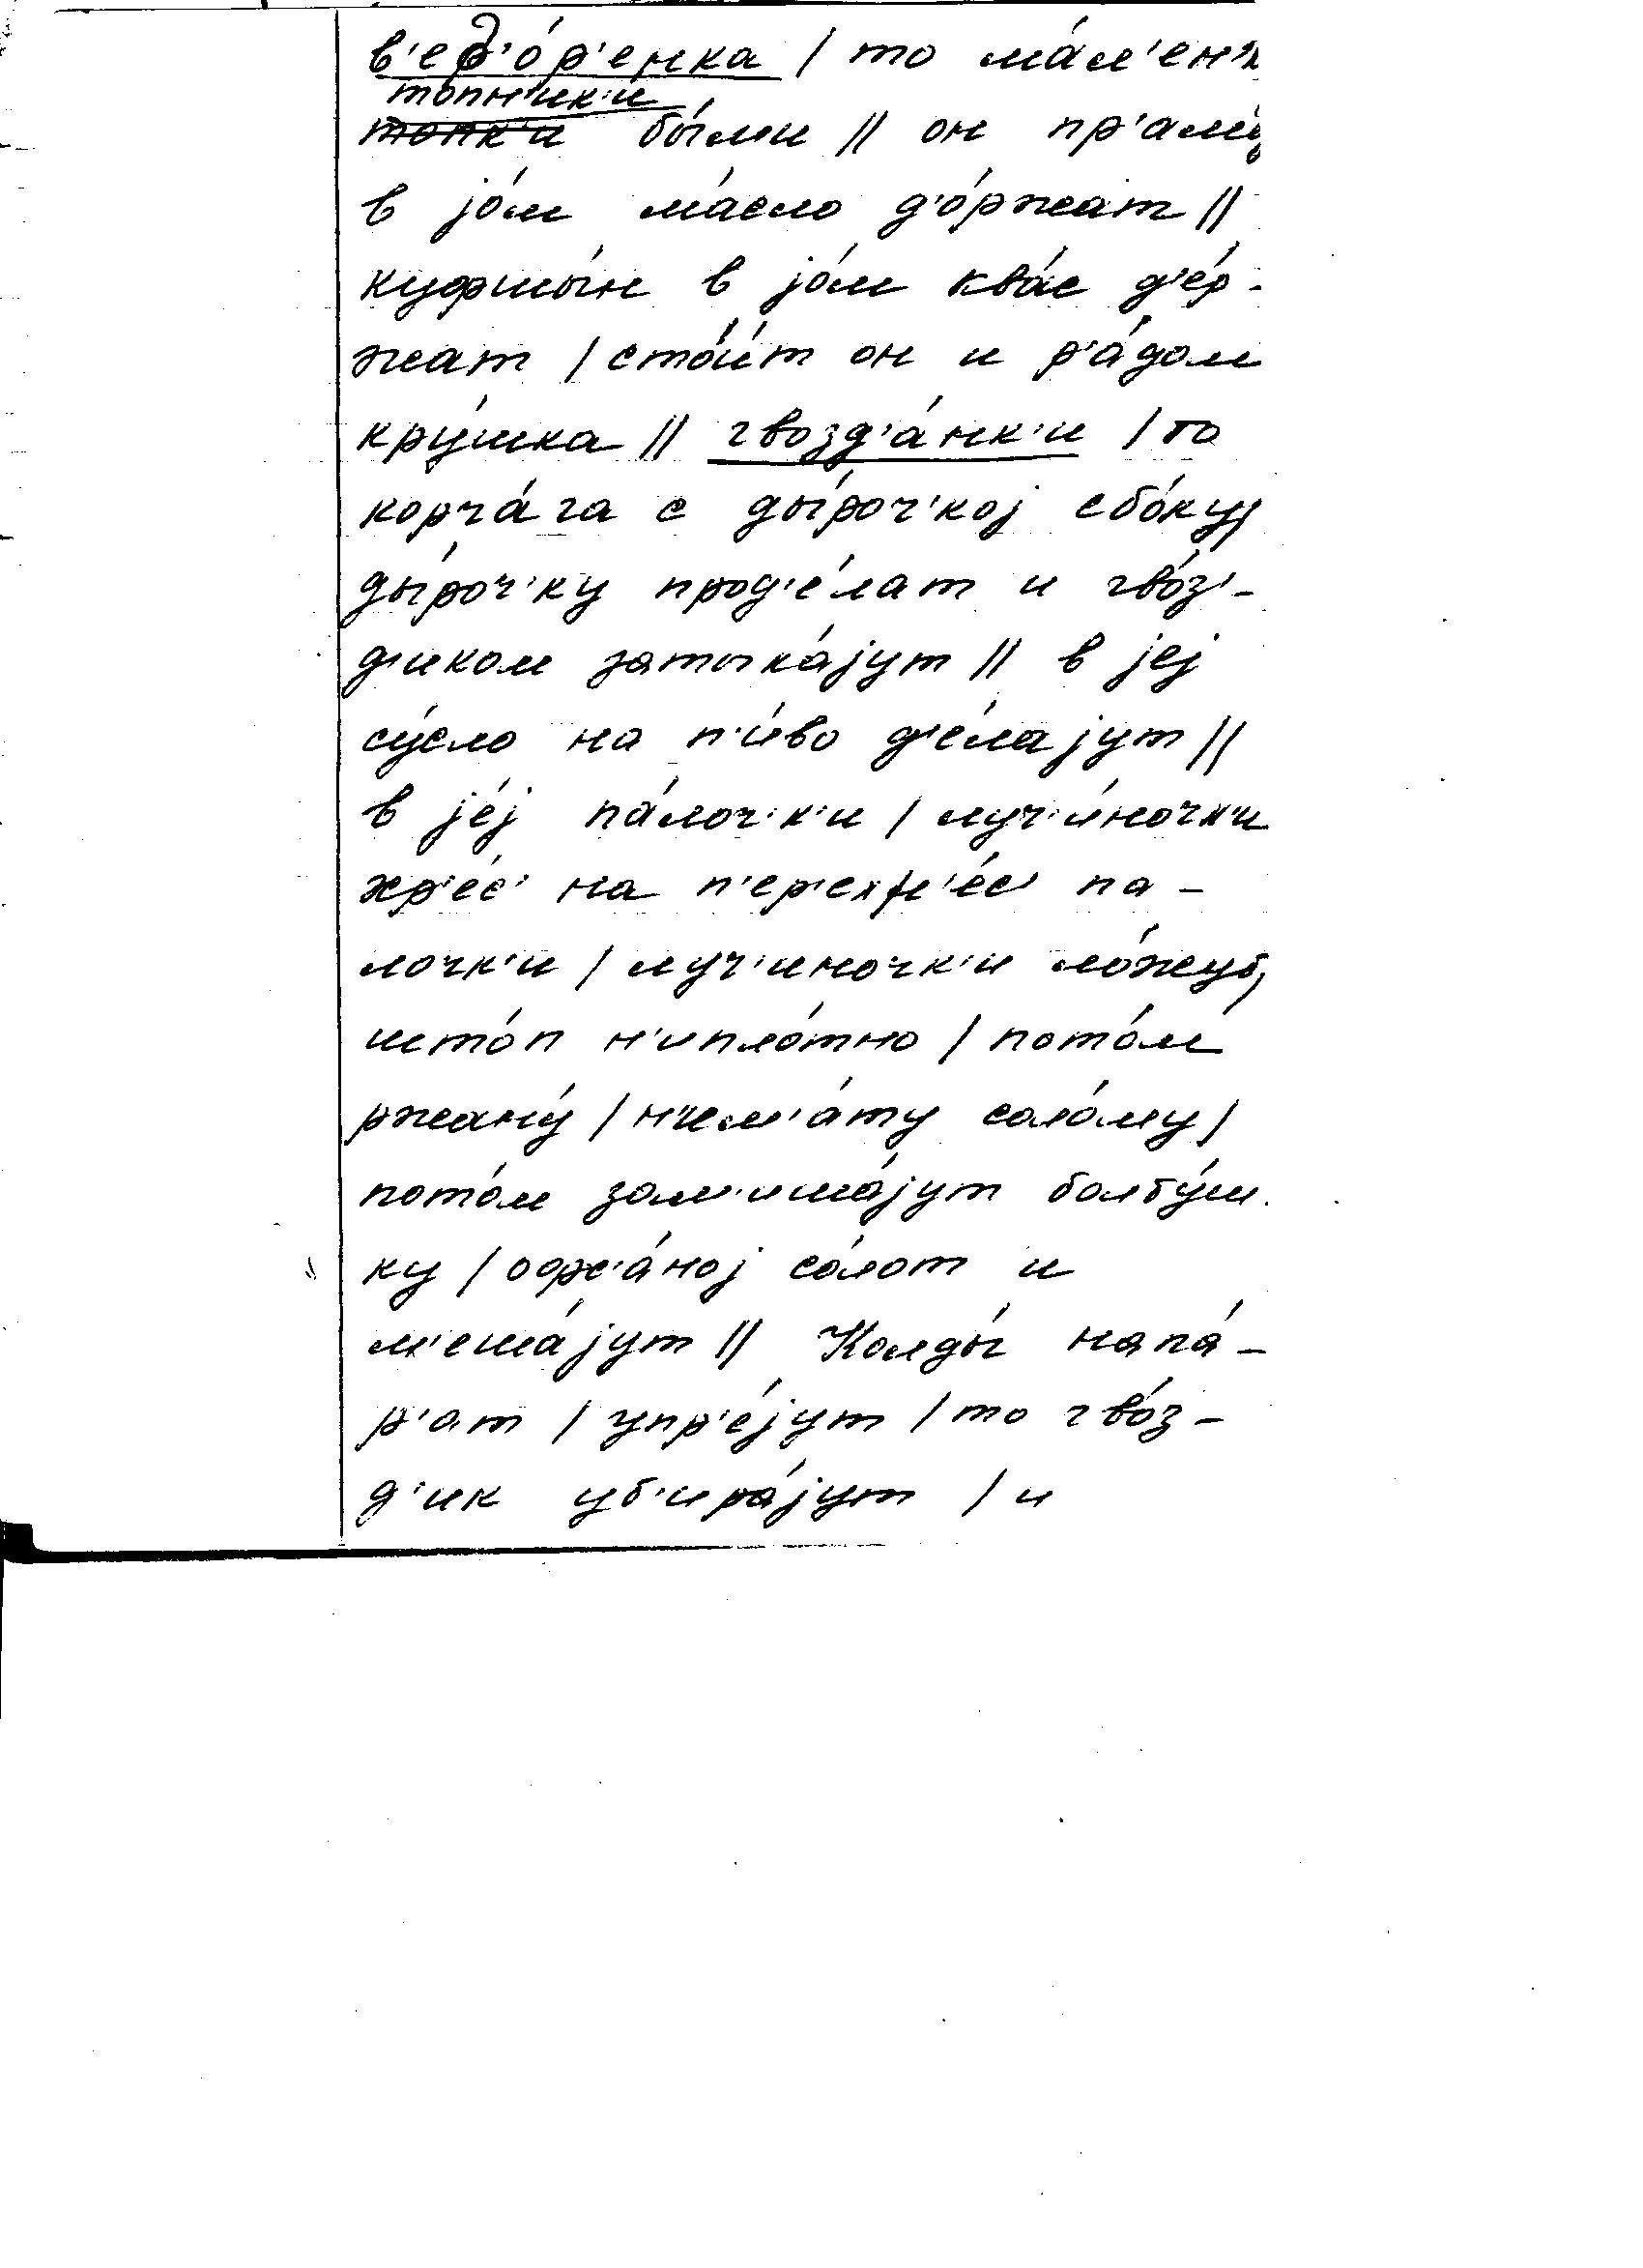 в'ед'о́р'енка / то ма́л'ен'к
топн'ик'и
топк'и бы́ли // он пр'ами́
в jо́м ма́сло д'о́ржат //
куфшы́н в jо́м ква́с д'е́р-
жат / сто́и́т он и р'а́дом
кру́шка // гвозд'а́нк'и / то
корча́га с ды́роч'кой сбо́ку /
ды́роч'ку прод'е́лат и гво́з'-
д'иком затыка́jут // в jеj
су́сло на п'и́во д'е́лаjут //
в jе́j па́лоч'к'и / луч'и́ночк'и
хр'е́с' на п'ер'ехр'е́с' па-
лочк'и / луч'иночк'и ло́жут /
што́п н'ипло́тно / пото́м
ржану́ / н'ем'а́ту соло́му /
пото́м зам'иша́jут болбу́ш-
ку / орж'а́ноj со́лот и
м'еша́jут // Колды́ напа́-
р'ат / упр'е́jут / то гво́з-
д'ик уб'ира́jут / и